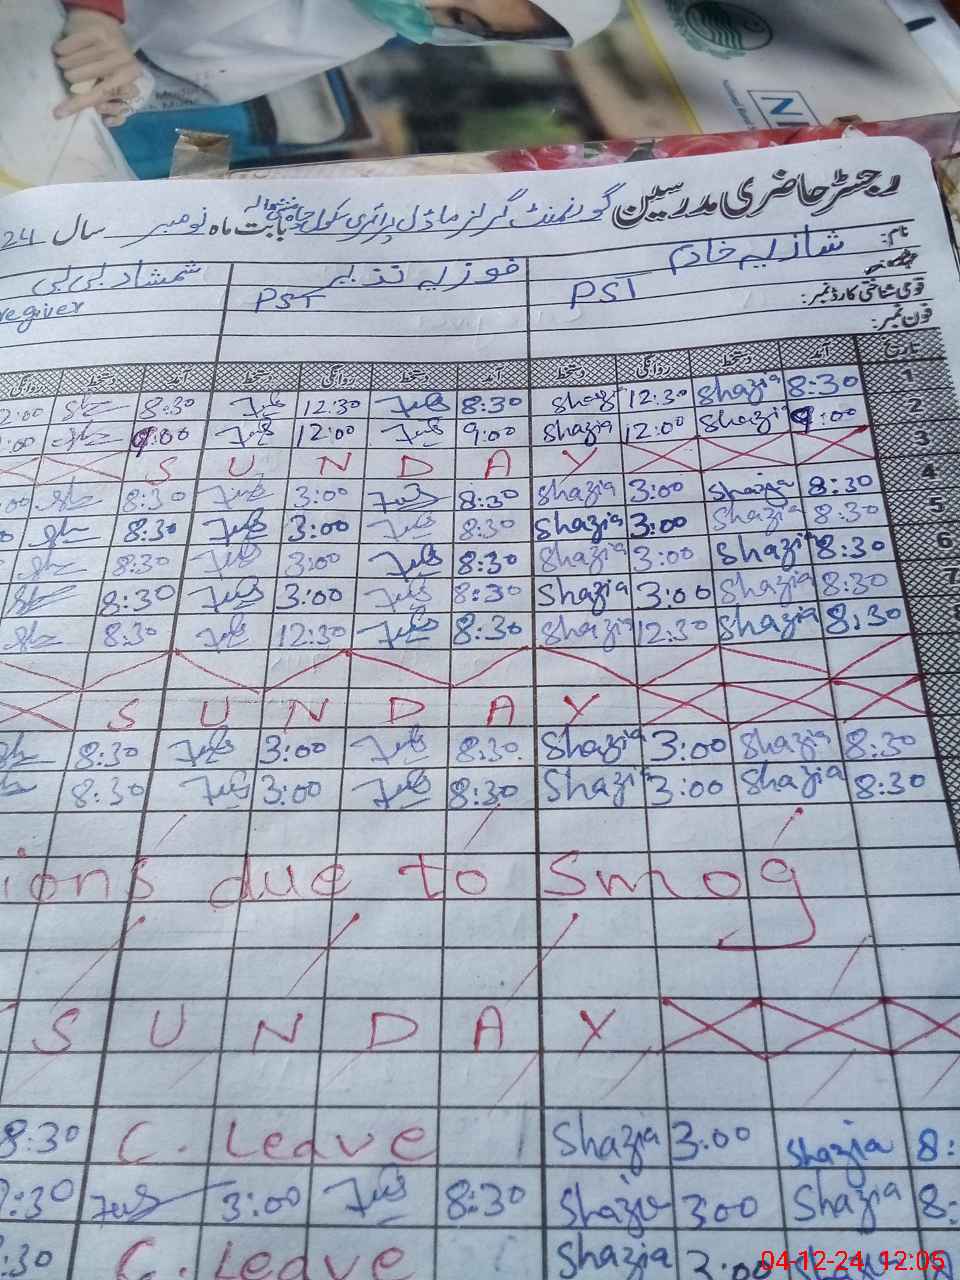 رجسٹر حاضری مدرسین گورنمنٹ گرلز ماڈل پرائمری سکول چاہ بابت ماہ نومبر سال 24
نام: شازیہ خادم فوزیہ نذیر شمشاد بی بی
عہدہ: PST PST regiver
قومی شناختی کارڈ نمبر:
فون نمبر:
تاریخ آمد دستخط روانگی دستخط آمد دستخط روانگی دستخط آمد دستخط روانگی
1 8:30 Shazia 12:30 Shazi 8:30 12:30 8:30 2:00
2 9:00 Shazia 12:00 Shazia 9:00 12:00 9:00 :00
3 SUNDAY
4 8:30 Shazia 3:00 Shazia 8:30 3:00 8:30 :00
5 8:30 Shazia 3:00 Shazia 8:30 3:00 8:30
6 8:30 Shazia 3:00 Shazia 8:30 3:00 8:30
7 8:30 Shazia 3:00 Shazia 8:30 3:00 8:30
8:30 Shazia 12:30 Shazia 8:30 12:30 8:30
SUNDAY
8:30 Shazia 3:00 Shazia 8:30 3:00 8:30
8:30 Shazia 3:00 Shazia 8:30 3:00 8:30
ions due to Smog
SUNDAY
8: Shazia 3:00 Shazia C. Leave 8:30
8: Shazia 300 Shazia 8:30 3:00 :30
Shazia 3:00 Shazia C. Leave :30
04-12-24 12:05